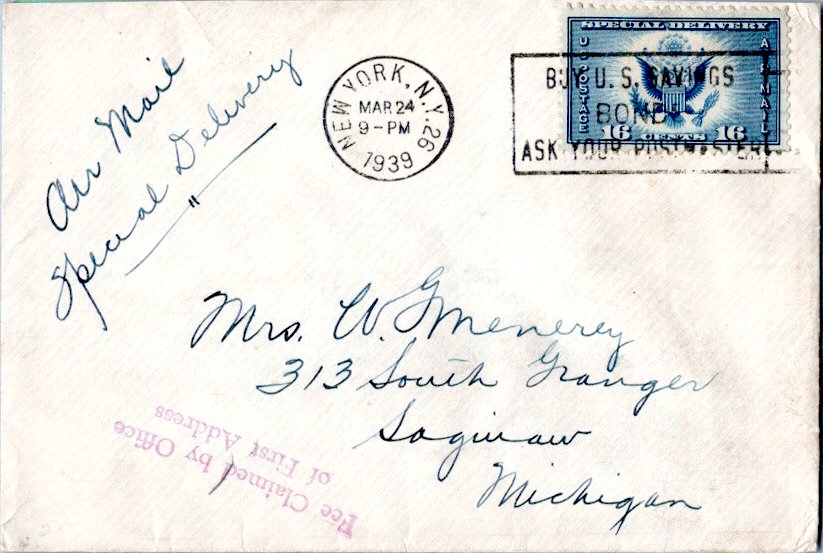 Air Mail
Special Delivery
"
NEW YORK, N.Y. 26
MAR 24
9-PM
1939
SPECIAL DELIVERY
U.S. POSTAGE
AIR MAIL
16 CENTS 16
BUY U.S. SAVINGS
BOND
ASK YOUR POSTMASTER
Mrs. W. G. Menerey
313 South Granger
Saginaw
Michigan
Fee Claimed by Office
of First Address